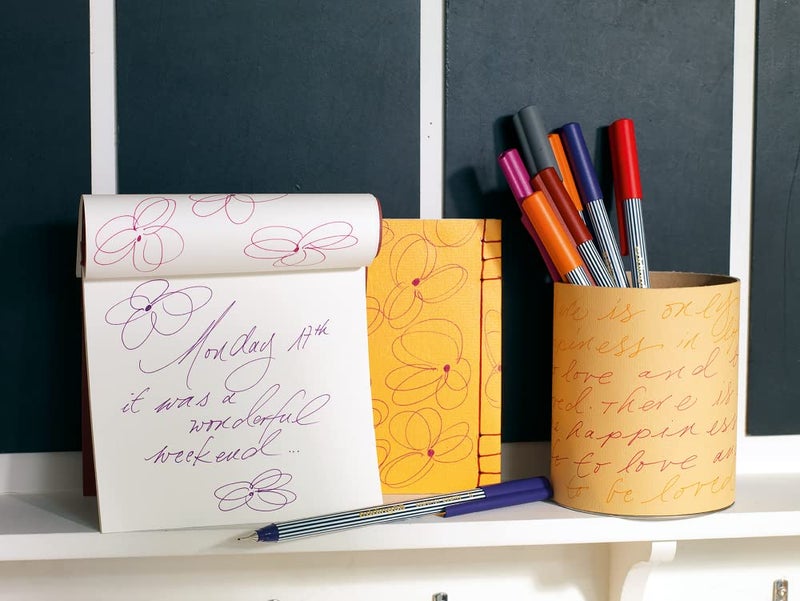 Monday 17th
it was a
wonderful
weekend...
is only
in
love and
There is
happiness
to love and
to be loved